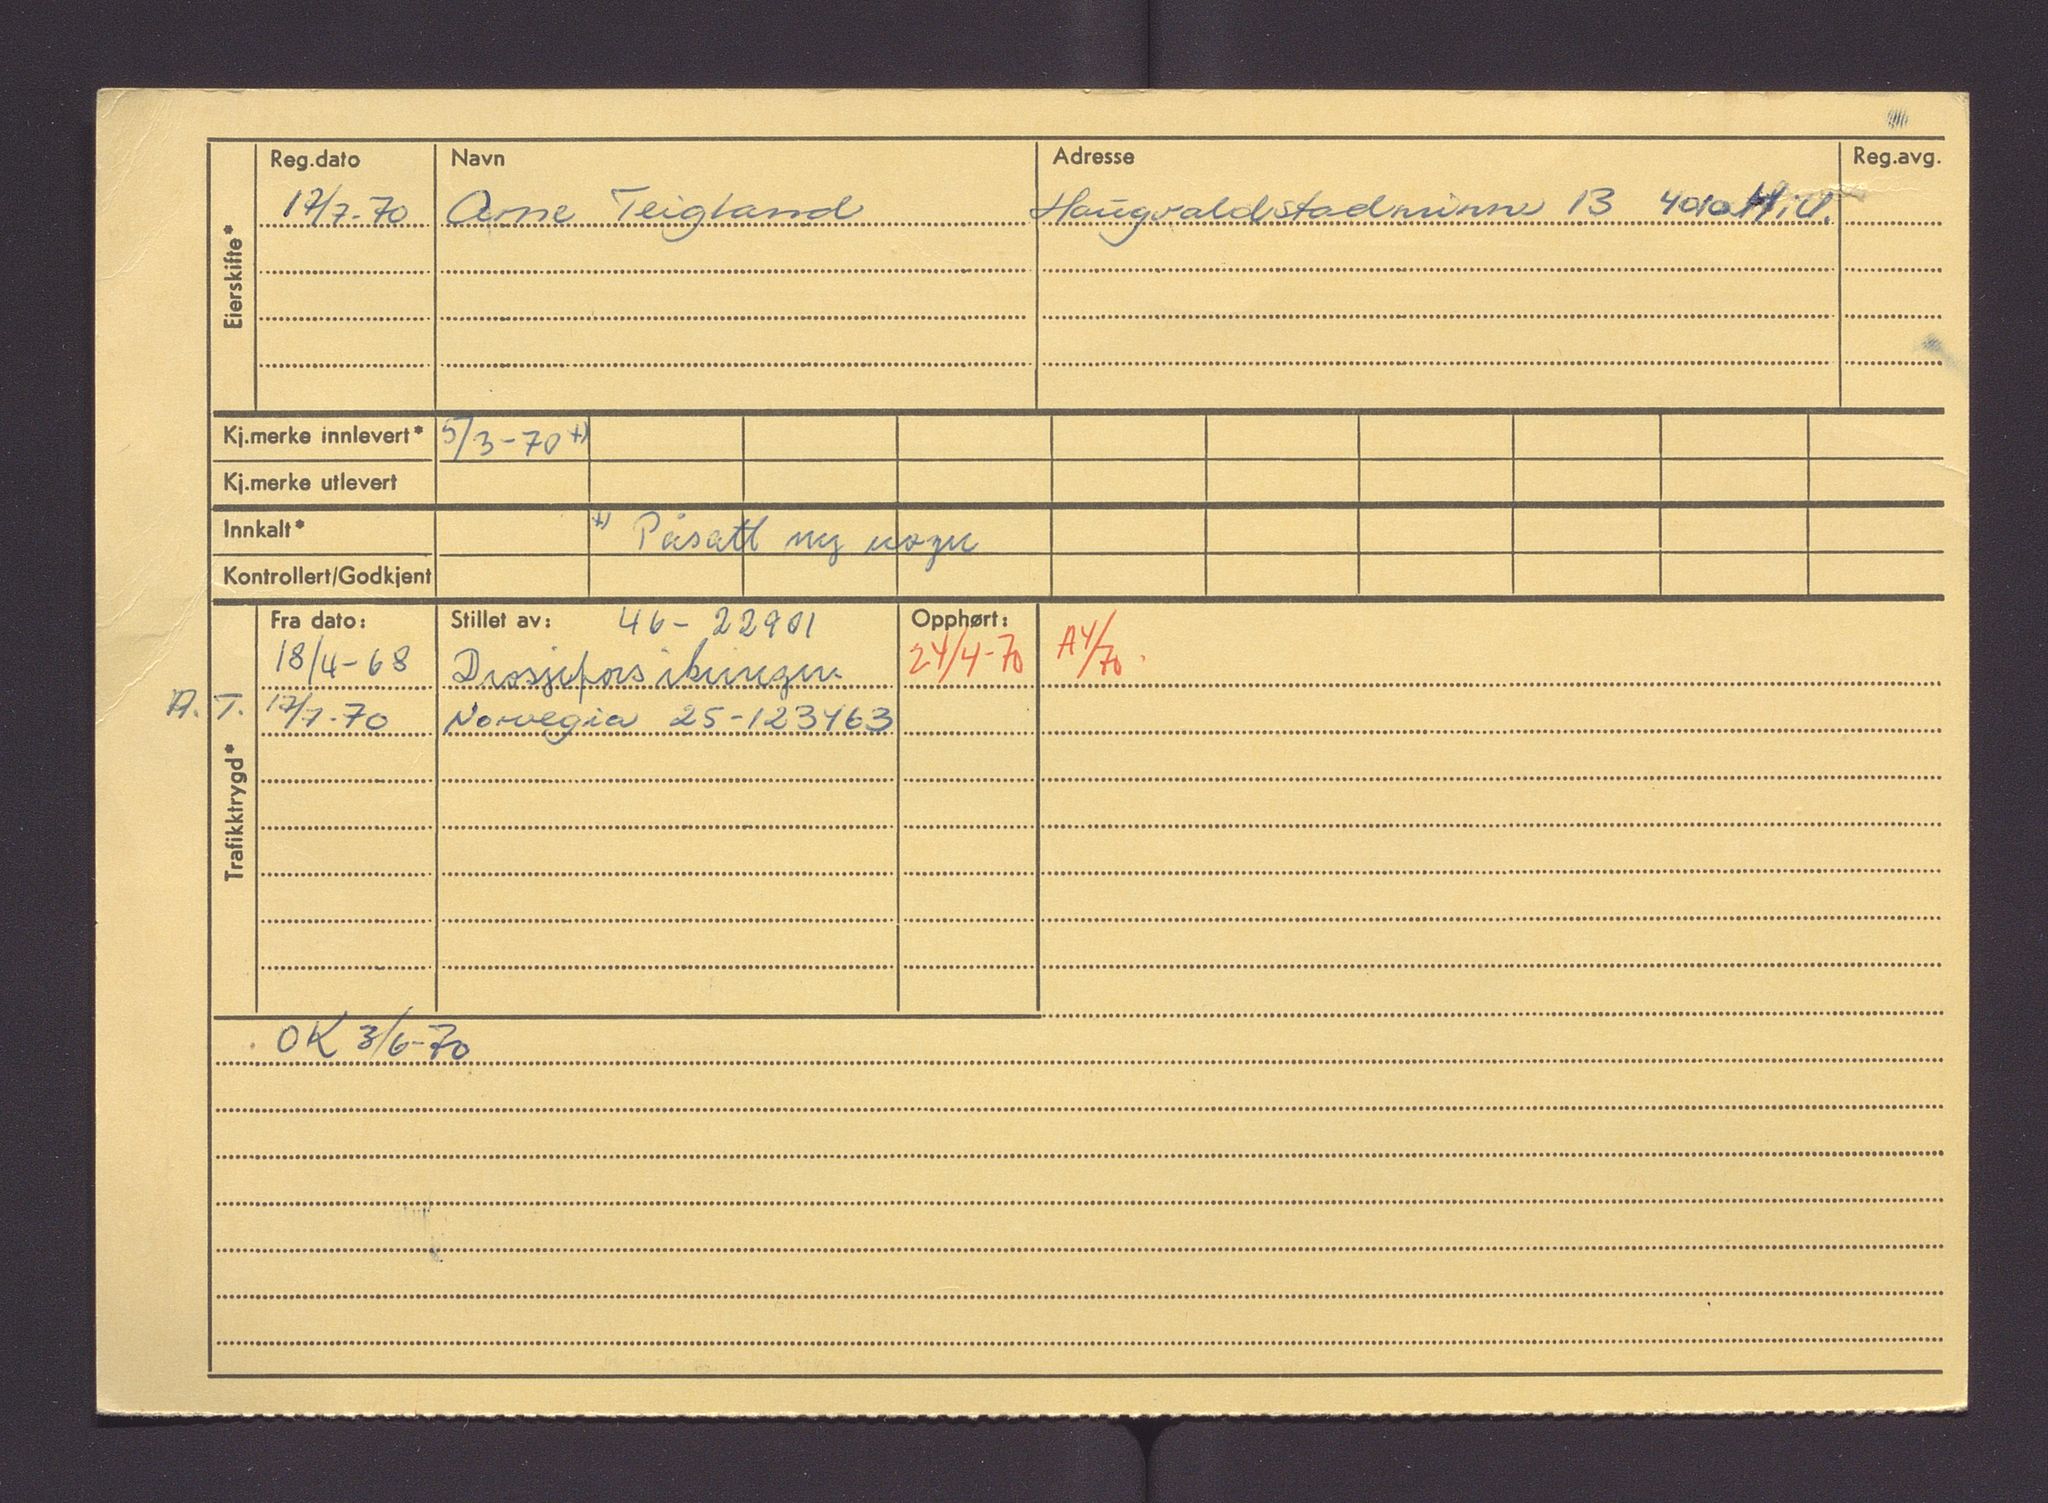 Reg.dato Navn Adresse Reg.avg.
17/7-70 Arne Teigland Haugvaldstadminne 13 4010 H.V.
Eierskifte*
Kj.merke innlevert* 5/3-70 +)
Kj.merke utlevert
Innkalt* +) Påsatt ny vogn
Kontrollert/Godkjent
Fra dato: Stillet av: 46-22901 Opphørt:
18/4-68 Drosjeforsikringen 24/4-70 A4/70.
A.T. 17/7-70 Norvegia 25-123463
Trafikktrygd*
OK 3/6-70